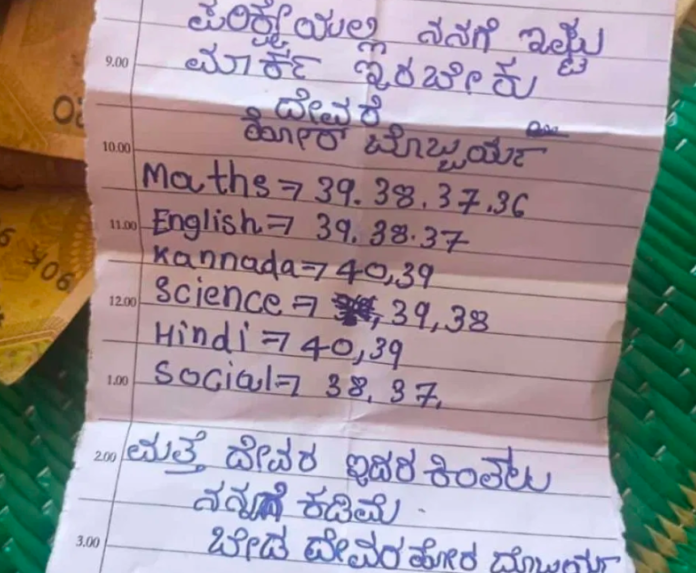 ಪರಿಕ್ಷೇಯಲ್ಲಿ ನನಗೆ ಇಷ್ಟು
9.00 ಮಾರ್ಕ್ ಇರಬೇಕು
ದೇವರೆ
10.00
Maths → 39.38.37.36
11.00 English → 39.38.37
Kannada → 40,39
12.00 Science → , 39,38
Hindi → 40,39
1.00 Social → 38, 37,
2.00 ಮತ್ತೆ ದೇವರ ಇದರ ಕಿಂತಲು
ನನ್ನಗೆ ಕಡಿಮೆ .
3.00 ಬೇಡ ದೇವರ